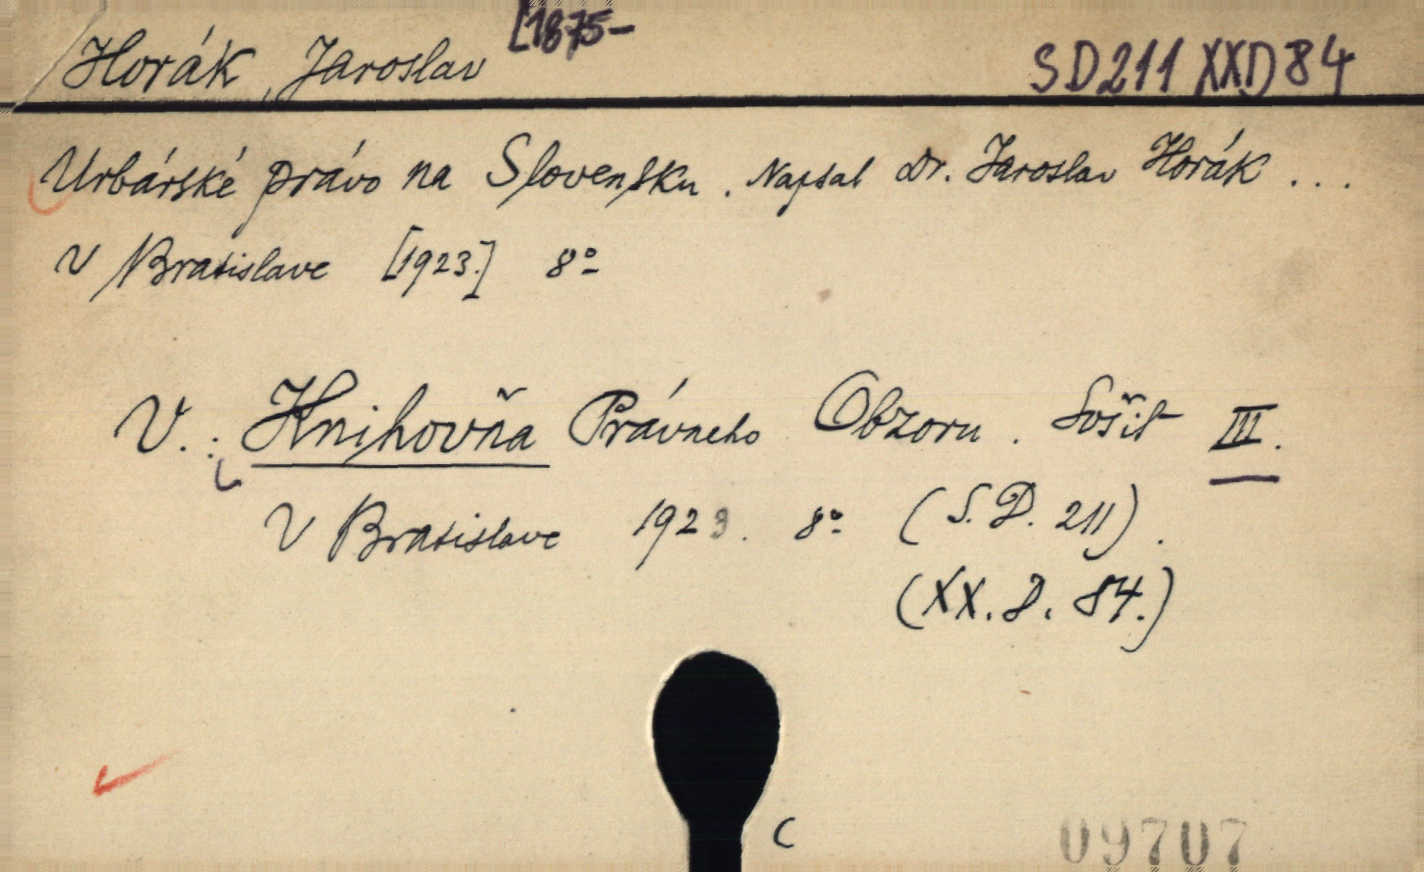 Horák, Jaroslav [1875-
SD211 XXD84
Urbárské právo na Slovensku. Napsal Dr. Jaroslav Horák ...
V Bratislave [1923.] 8º
V.: Knihovňa Právneho Obzoru. Sošit III.
V Bratislave 1923. 8º (S.D. 211).
(XX.D. 84.)
C
09707